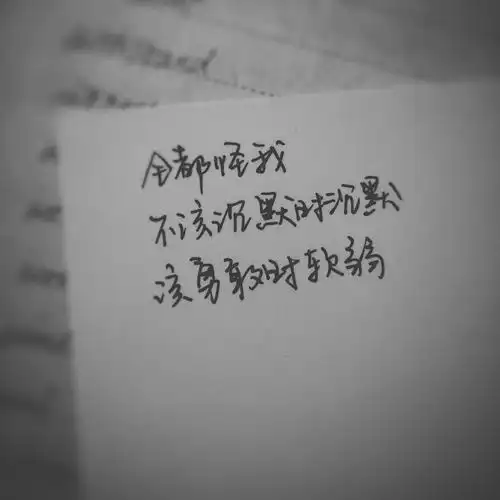 全都怪我
不该沉默时沉默
该勇敢时软弱